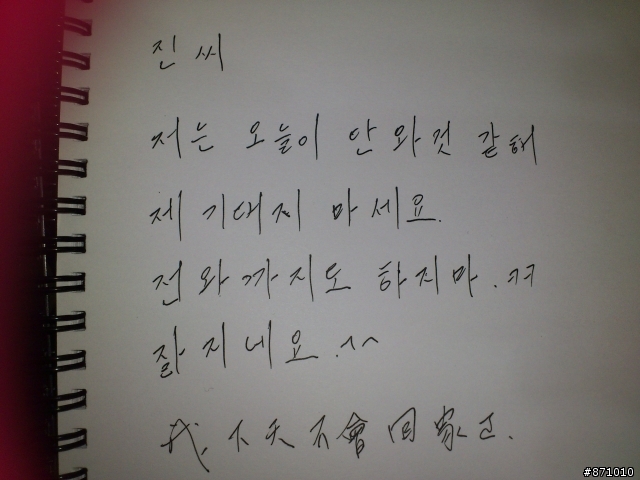 진 씨
저는 오늘이 안 와것 같해
제 기대지 마세요.
전와까지도 하지마. ㅋㅋ
잘 지네요. ^^
我 不天不會回家了.
#871010